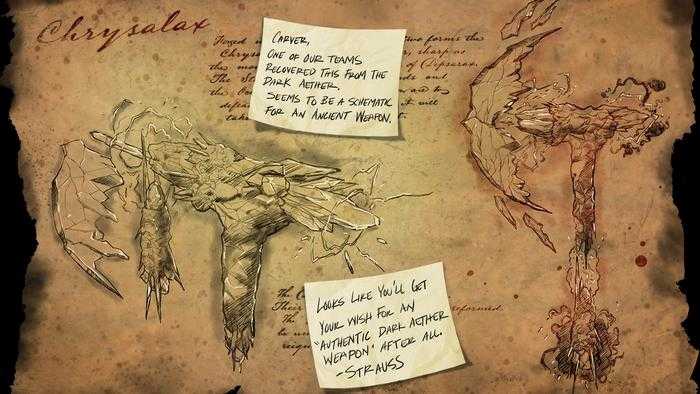 Chrysalax
Forged two forms the
Chrys , sharp as
the of Opserax.
The So ds and
the Co are to
defea it will
take
CARVER,
ONE OF OUR TEAMS
RECOVERED THIS FROM THE
DARK AETHER.
SEEMS TO BE A SCHEMATIC
FOR AN ANCIENT WEAPON.
The C
Their reformed.
The
be un
reign
LOOKS LIKE YOU'LL GET
YOUR WISH FOR AN
"AUTHENTIC DARK AETHER
WEAPON" AFTER ALL.
-STRAUSS